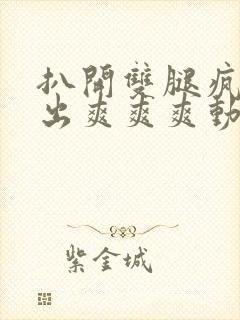 扒開雙腿瘋
出爽爽爽動
紫金城